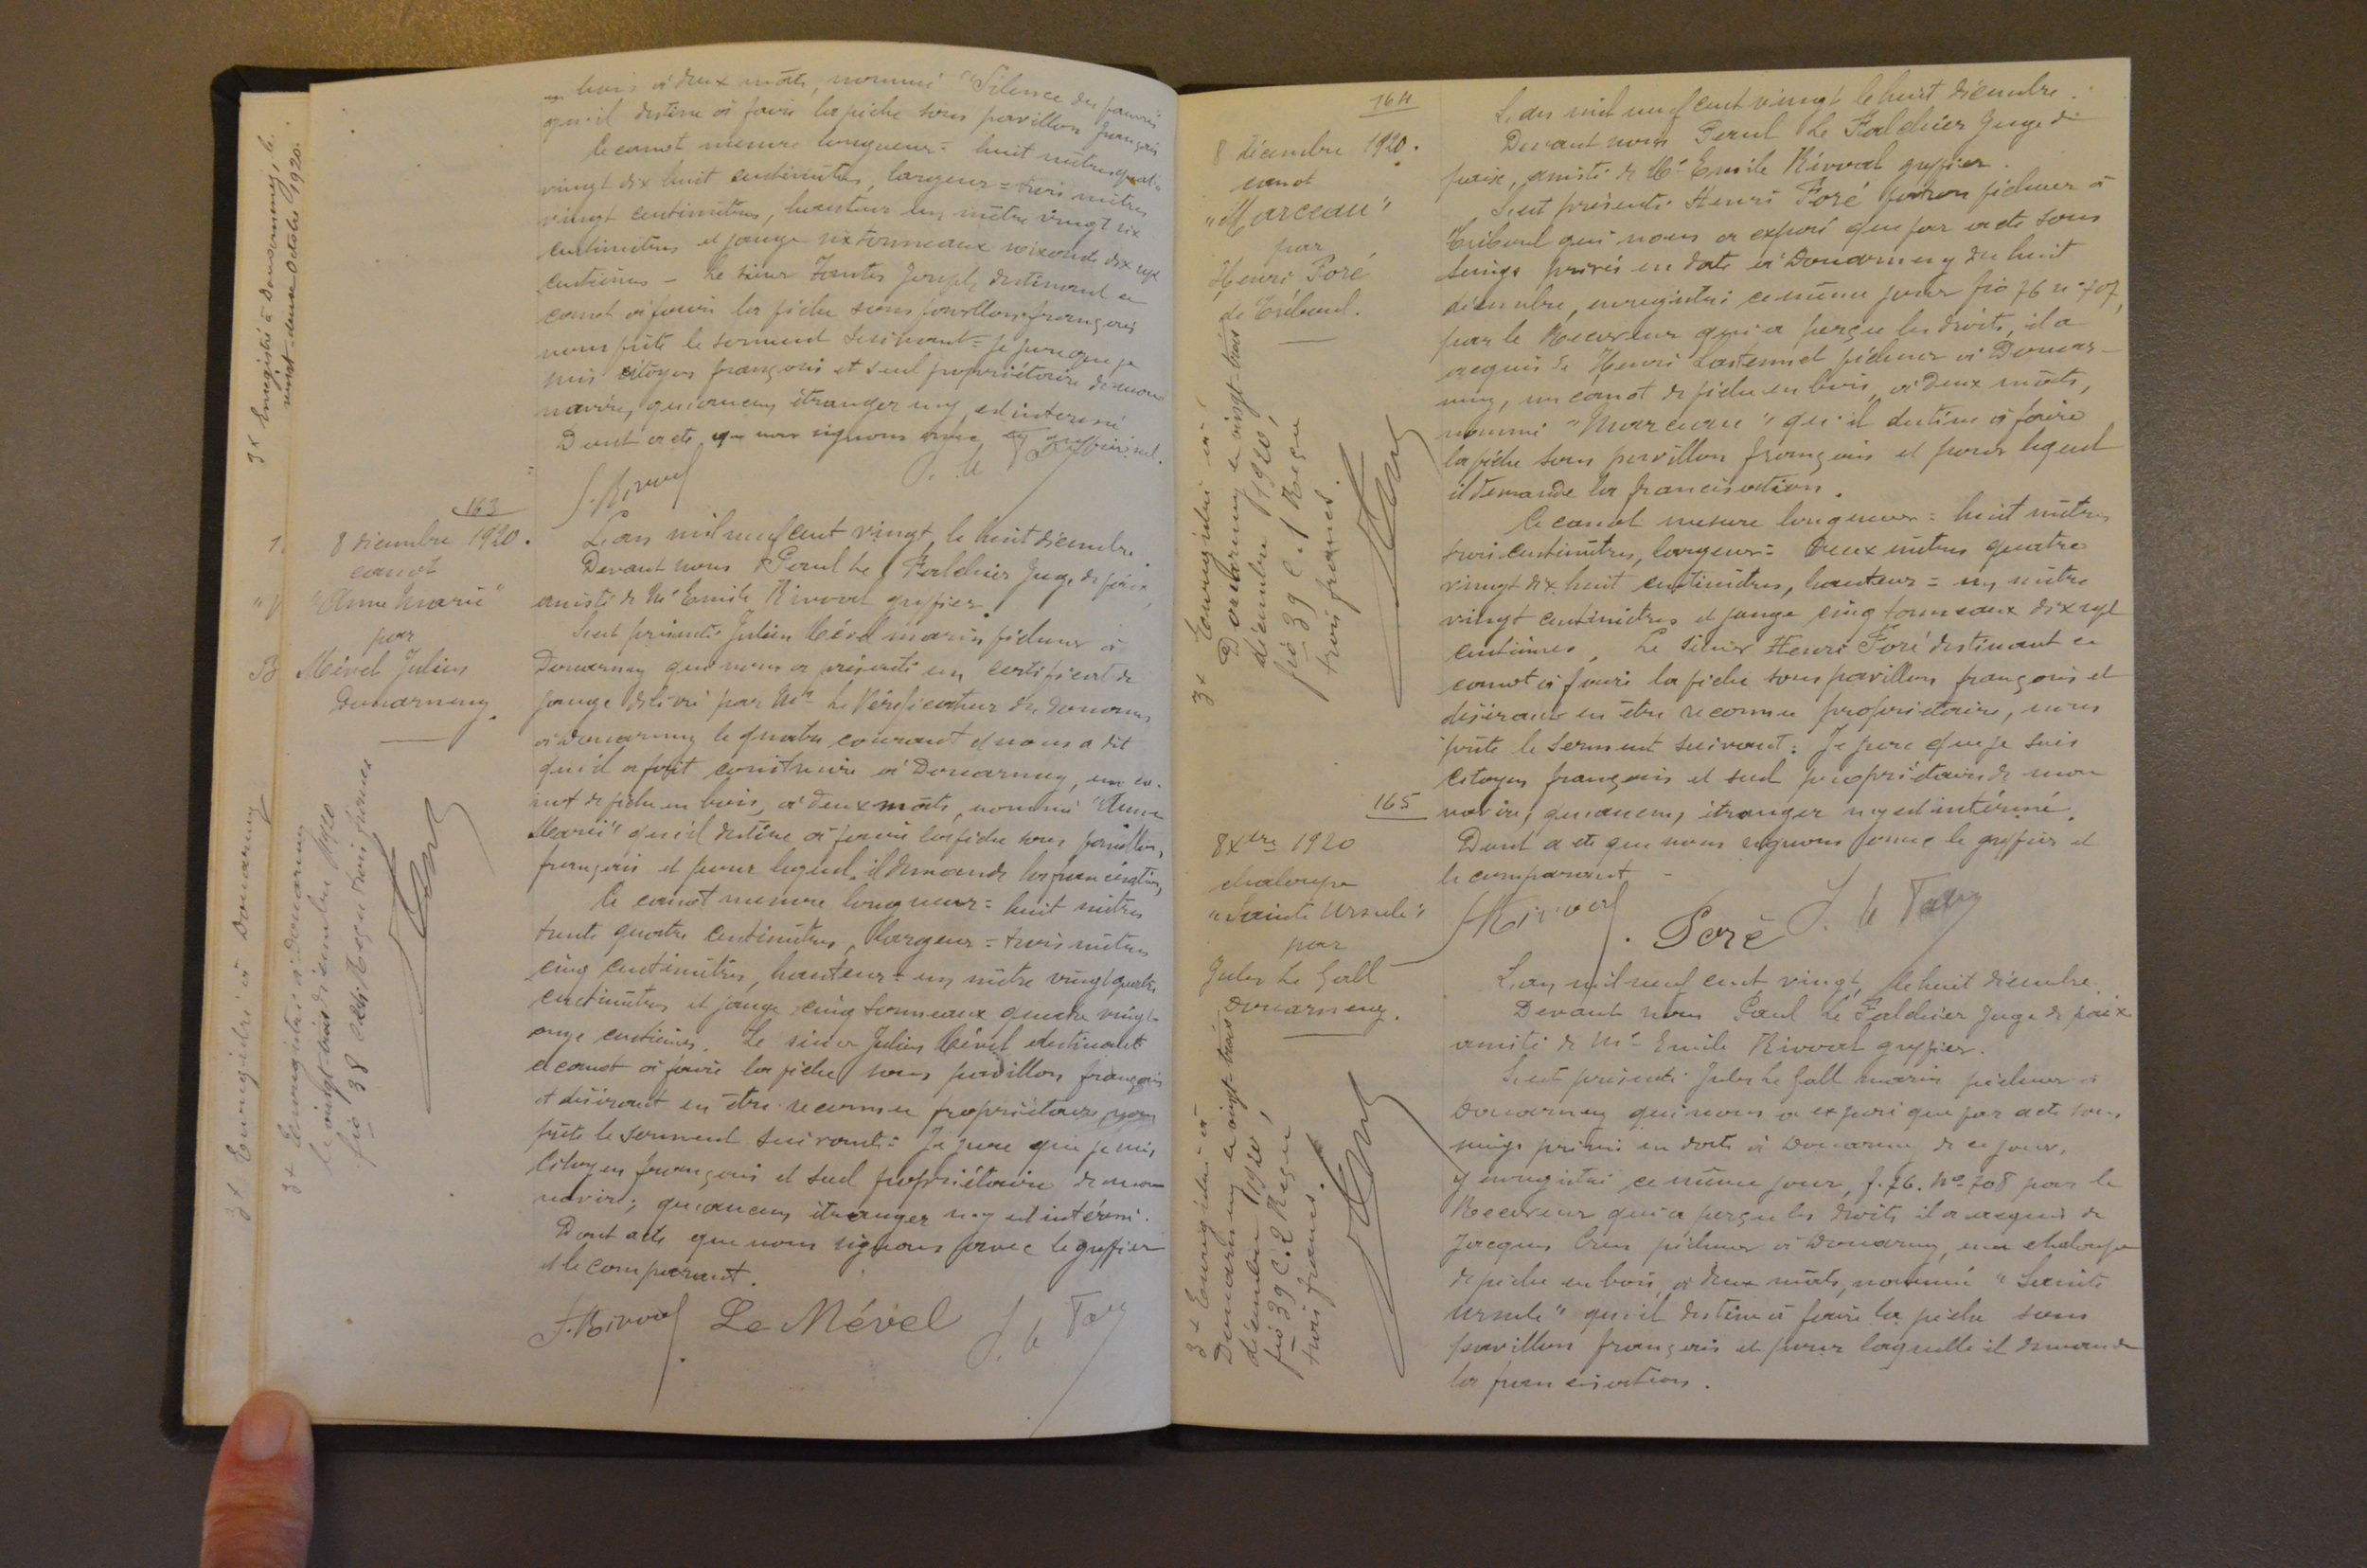 bois à deux mâts, nommé "Silence du pauvre"
qu'il destine à faire la pêche sous pavillon français
Ce canot mesure longueur = huit mètres quatre
vingt dix huit centimètres, largeur = trois mètres
vingt centimètres, hauteur un mètre vingt six
centimètres et jauge six tonneaux soixante dix sept
centièmes - Le sieur Joseph destinant ce
canot à faire la pêche sous pavillon français
nous prête le serment suivant = je jure que je
suis citoyen français et seul propriétaire de mon
navire, qu'aucun étranger n'y est intéressé
Dont acte que nous signons avec le greffier seul.
163
8 décembre 1920.
canot
"Anne Marie"
par
Mével Julien
Douarnenez.
L'an mil neuf cent vingt, le huit décembre.
Devant nous Paul Le Falchier Juge de paix,
assisté de Me Emile Rivoal greffier.
S'est présenté Julien Mével marin pêcheur à
Douarnenez qui nous a présenté un certificat de
jauge délivré par Mr le Vérificateur des Douanes
à Douarnenez le quatre courant et nous a dit
qu'il a fait construire à Douarnenez, un ca-
not de pêche en bois, à deux mâts, nommé "Anne
Marie" qu'il destine à faire la pêche sous pavillon
français et pour lequel il demande la francisation,
Ce canot mesure longueur = huit mètres
trente quatre centimètres, largeur = trois mètres
cinq centimètres, hauteur = un mètre vingt quatre
centimètres et jauge cinq tonneaux quatre vingt
onze centièmes. Le sieur Julien Mével destinant
ce canot à faire la pêche sous pavillon français
et désirant en être reconnu propriétaire nous
prête le serment suivant = Je jure que je suis
citoyen français et seul propriétaire de mon
navire; qu'aucun étranger n'y est intéressé.
Dont acte que nous signons avec le greffier
et le comparant.
Le Mével
3x Enregistré à Douarnenez
le vingt trois décembre 1920
fio 38 Reçu trois francs
3x Enregistré à Douarnenez, le
vingt-deux Octobre 1920.
3x Enregistré à Douarnenez
164
8 décembre 1920.
canot
"Marceau"
par
Henri Poré
de Tréboul.
L'an mil neuf cent vingt le huit décembre.
Devant nous Paul Le Falchier Juge de
paix, assisté de Me Emile Rivoal greffier.
S'est présenté Henri Poré patron pêcheur à
Tréboul qui nous a exposé que par acte sous
seings privés en date à Douarnenez du huit
décembre, enregistré ce même jour fio 76 no 707,
par le Receveur qui a perçu les droits, il a
acquis de Henri Lastennet pêcheur à Douar-
nenez, un canot de pêche en bois, à deux mâts,
nommé "Marceau" qu'il destine à faire
la pêche sous pavillon français et pour lequel
il demande la francisation.
Ce canot mesure longueur = huit mètres
trois centimètres, largeur = deux mètres quatre
vingt dix huit centimètres, hauteur = un mètre
vingt centimètres et jauge cinq tonneaux dix sept
centièmes, Le sieur Henri Poré destinant ce
canot à faire la pêche sous pavillon français et
désirant en être reconnu propriétaire, nous
prête le serment suivant: Je jure que je suis
citoyen français et seul propriétaire de mon
navire, qu'aucun, étranger n'y est intéressé.
Dont acte que nous signons avec le greffier et
le comparant -
Poré
3x Enregistré à
Douarnenez le vingt-trois
décembre 1920,
fio 39 C. 1 Reçu
trois francs.
165
8 Xbre 1920
chaloupe
"Sainte Ursule"
par
Jules Le Gall
Douarnenez.
L'an mil neuf cent vingt, le huit décembre.
Devant nous Paul Le Falchier Juge de paix
assisté de Me Emile Rivoal greffier.
S'est présenté Jules Le Gall marin pêcheur à
Douarnenez qui nous a exposé que par acte sous
seings privés en date à Douarnenez de ce jour,
y enregistré ce même jour, f. 76. No 708 par le
Receveur qui a perçu les droits il a acquis de
Jacques pêcheur à Douarnenez, une chaloupe
de pêche en bois, à deux mâts, nommée "Sainte
Ursule" qu'il destine à faire la pêche sous
pavillon français et pour laquelle il demande
la francisation.
3x Enregistré à
Douarnenez le vingt-trois
décembre 1920,
fio 39 C. 2 Reçu
trois francs.